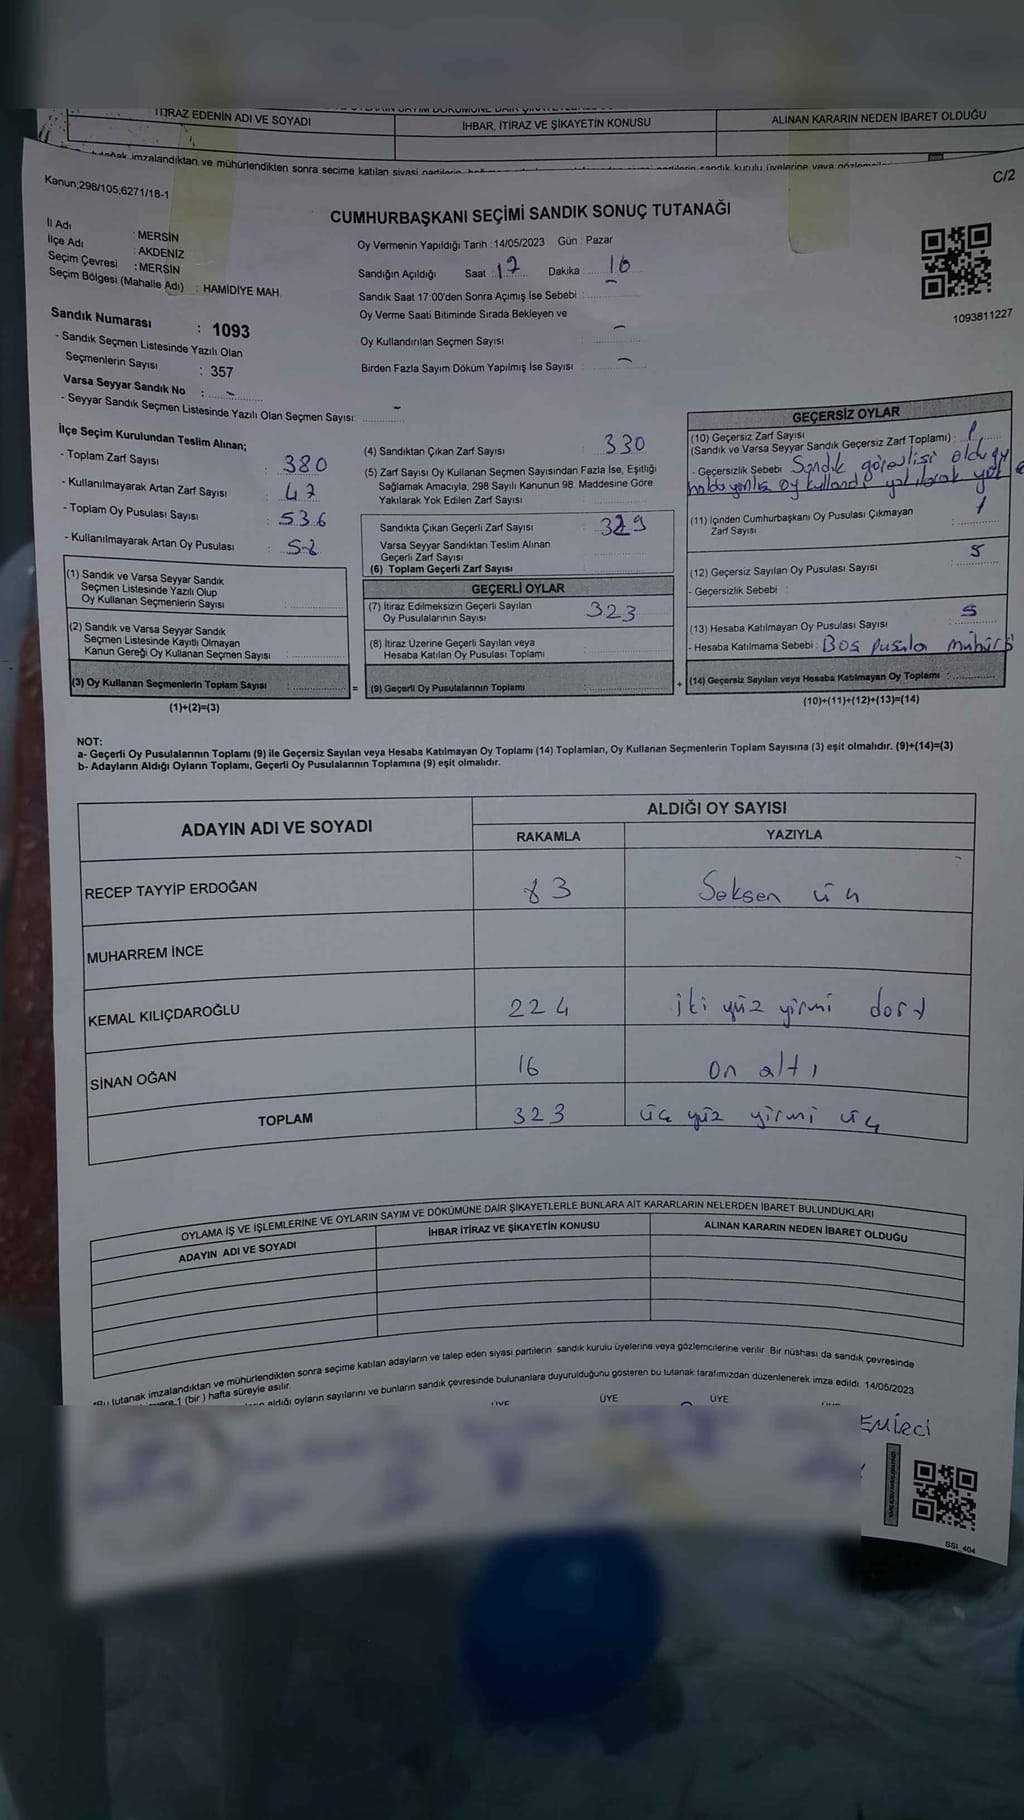 İTİRAZ EDENİN ADI VE SOYADI
İHBAR, İTİRAZ VE ŞİKAYETİN KONUSU
ALINAN KARARIN NEDEN İBARET OLDUĞU
imzalandıktan ve mühürlendikten sonra seçime katılan siyasi partilerin
Kanun;298/105,6271/18-1
C/2
CUMHURBAŞKANI SEÇİMİ SANDIK SONUÇ TUTANAĞI
İl Adı : MERSİN
İlçe Adı : AKDENİZ
Seçim Çevresi : MERSİN
Seçim Bölgesi (Mahalle Adı) : HAMİDİYE MAH.
Oy Vermenin Yapıldığı Tarih : 14/05/2023 Gün : Pazar
Sandığın Açıldığı Saat 17 Dakika 16
Sandık Saat 17:00'den Sonra Açımış İse Sebebi : -
Oy Verme Saati Bitiminde Sırada Bekleyen ve
Oy Kullandırılan Seçmen Sayısı : -
Birden Fazla Sayım Döküm Yapılmış İse Sayısı : -
1093811227
Sandık Numarası : 1093
- Sandık Seçmen Listesinde Yazılı Olan
Seçmenlerin Sayısı : 357
Varsa Seyyar Sandık No : -
- Seyyar Sandık Seçmen Listesinde Yazılı Olan Seçmen Sayısı: -
İlçe Seçim Kurulundan Teslim Alınan;
- Toplam Zarf Sayısı : 380
- Kullanılmayarak Artan Zarf Sayısı : 47
- Toplam Oy Pusulası Sayısı : 536
- Kullanılmayarak Artan Oy Pusulası :
(1) Sandık ve Varsa Seyyar Sandık
Seçmen Listesinde Yazılı Olup
Oy Kullanan Seçmenlerin Sayısı :
(2) Sandık ve Varsa Seyyar Sandık
Seçmen Listesinde Kayıtlı Olmayan
Kanun Gereği Oy Kullanan Seçmen Sayısı :
(3) Oy Kullanan Seçmenlerin Toplam Sayısı :
(1)+(2)=(3)
(4) Sandıktan Çıkan Zarf Sayısı : 330
(5) Zarf Sayısı Oy Kullanan Seçmen Sayısından Fazla İse, Eşitliği
Sağlamak Amacıyla, 298 Sayılı Kanunun 98. Maddesine Göre
Yakılarak Yok Edilen Zarf Sayısı :
Sandıkta Çıkan Geçerli Zarf Sayısı : 329
Varsa Seyyar Sandıktan Teslim Alınan
Geçerli Zarf Sayısı :
(6) Toplam Geçerli Zarf Sayısı :
GEÇERLİ OYLAR
(7) İtiraz Edilmeksizin Geçerli Sayılan
Oy Pusulalarının Sayısı : 323
(8) İtiraz Üzerine Geçerli Sayılan veya
Hesaba Katılan Oy Pusulası Toplamı :
= (9) Geçerli Oy Pusulalarının Toplamı :
GEÇERSİZ OYLAR
(10) Geçersiz Zarf Sayısı
(Sandık ve Varsa Seyyar Sandık Geçersiz Zarf Toplamı) : 1
- Geçersizlik Sebebi : Sandık görevlisi olduğu
halde yanlış oy kullandı yakılarak yok
(11) İçinden Cumhurbaşkanı Oy Pusulası Çıkmayan
Zarf Sayısı : 1
(12) Geçersiz Sayılan Oy Pusulası Sayısı : 5
- Geçersizlik Sebebi :
(13) Hesaba Katılmayan Oy Pusulası Sayısı : 5
- Hesaba Katılmama Sebebi : Boş pusula
+ (14) Geçersiz Sayılan veya Hesaba Katılmayan Oy Toplamı :
(10)+(11)+(12)+(13)=(14)
NOT:
a- Geçerli Oy Pusulalarının Toplamı (9) ile Geçersiz Sayılan veya Hesaba Katılmayan Oy Toplamı (14) Toplamları, Oy Kullanan Seçmenlerin Toplam Sayısına (3) eşit olmalıdır. (9)+(14)=(3)
b- Adayların Aldığı Oyların Toplamı, Geçerli Oy Pusulalarının Toplamına (9) eşit olmalıdır.
ADAYIN ADI VE SOYADI
ALDIĞI OY SAYISI
RAKAMLA
YAZIYLA
RECEP TAYYİP ERDOĞAN 83 Seksen üç
MUHARREM İNCE
KEMAL KILIÇDAROĞLU 224 iki yüz yirmi dört
SİNAN OĞAN 16 on altı
TOPLAM 323 üç yüz yirmi üç
OYLAMA İŞ VE İŞLEMLERİNE VE OYLARIN SAYIM VE DÖKÜMÜNE DAİR ŞİKAYETLERLE BUNLARA AİT KARARLARIN NELERDEN İBARET BULUNDUKLARI
ADAYIN ADI VE SOYADI
İHBAR İTİRAZ VE ŞİKAYETİN KONUSU
ALINAN KARARIN NEDEN İBARET OLDUĞU
*Bu tutanak imzalandıktan ve mühürlendikten sonra seçime katılan adayların ve talep eden siyasi partilerin sandık kurulu üyelerine veya gözlemcilerine verilir. Bir nüshası da sandık çevresinde
1 (bir) hafta süreyle asılır.
aldığı oyların sayılarını ve bunların sandık çevresinde bulunanlara duyurulduğunu gösteren bu tutanak tarafımızdan düzenlenerek imza edildi. 14/05/2023
ÜYE
ÜYE
ÜYE
EMİRCİ
SSI_404